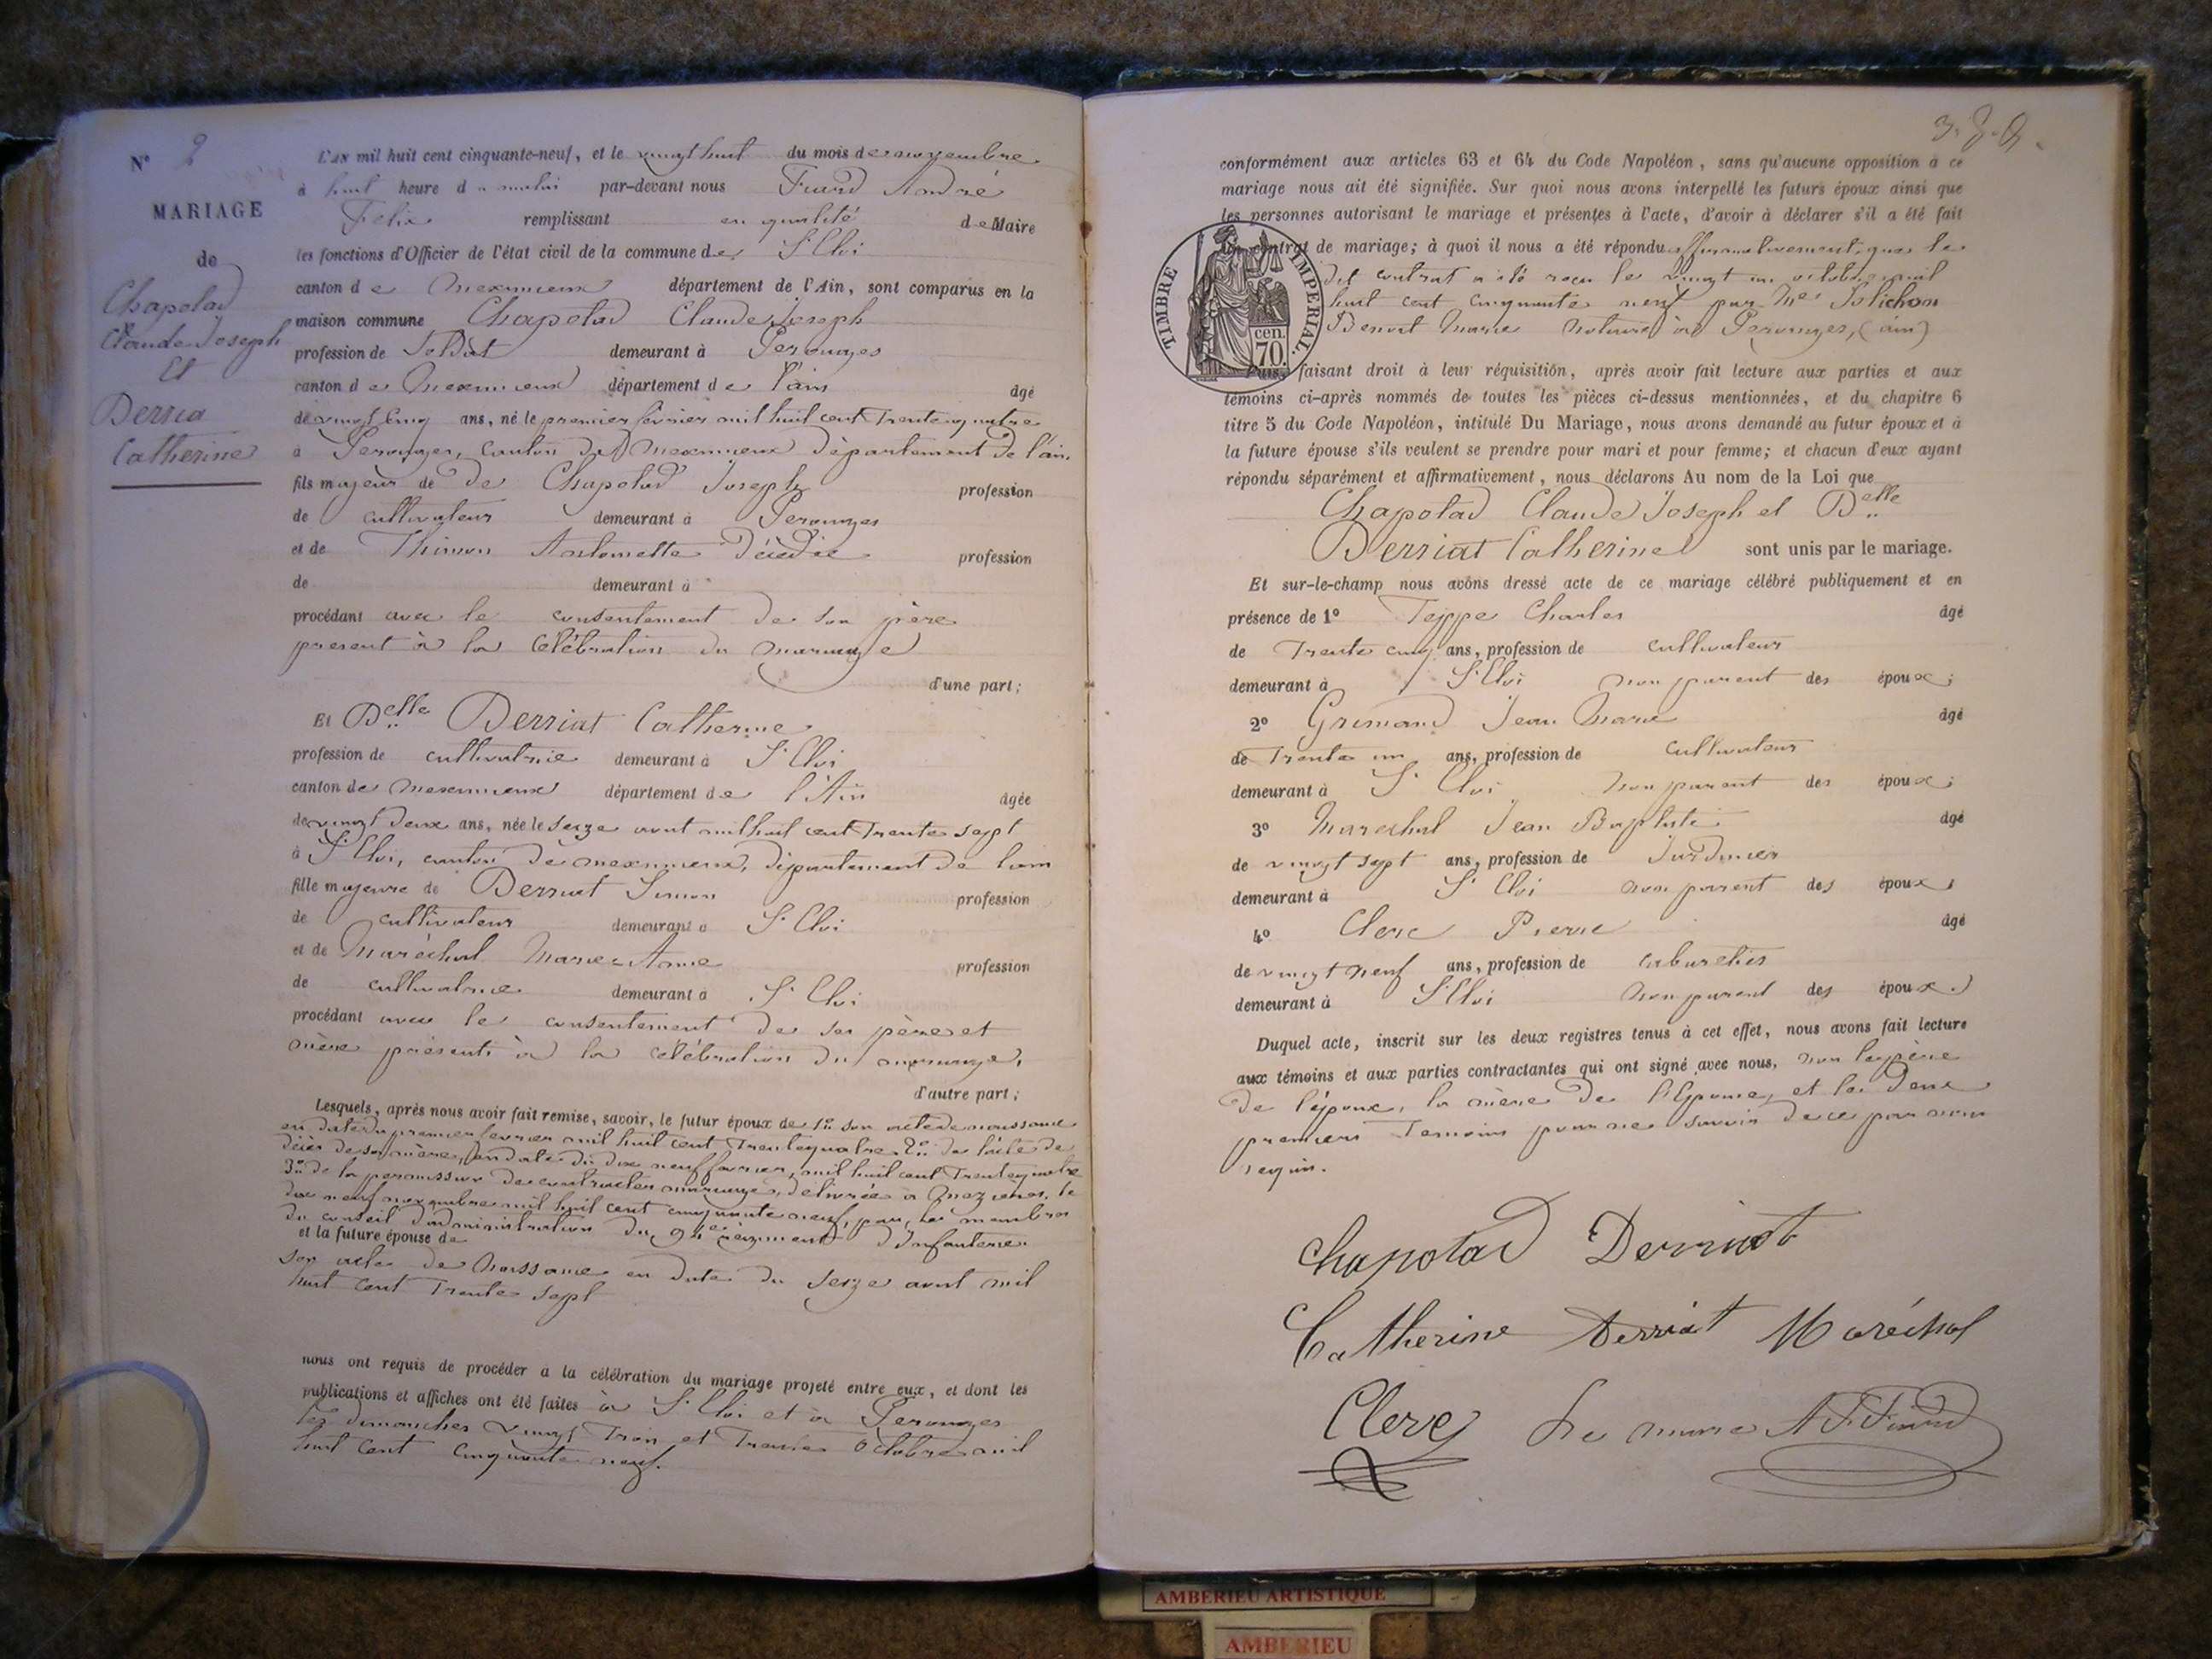 N° 2
MARIAGE
de
Chapolad
Claude Joseph
Et
Derria
Catherine
L'an mil huit cent cinquante-neuf, et le vingt huit du mois de novembre
à huit heure du matin par-devant nous Fiard André
Félix remplissant en qualité de Maire
les fonctions d'Officier de l'état civil de la commune de St Eloi
canton de Meximieux département de l'Ain, sont comparus en la
maison commune Chapolad Claude Joseph
profession de Soldat demeurant à Perouges
canton de Meximieux département de l'ain âgé
de vingt cinq ans, né le premier février mil huit cent trente quatre
à Perouges, canton de Meximieux département de l'ain.
fils majeur de de Chapolad Joseph profession
de cultivateur demeurant à Perouges
et de Thimon Antoinette décédée profession
de demeurant à
procédant avec le consentement de son père
present à la célébration du mariage
d'une part;
Et Delle Derriat Catherine
profession de cultivatrice demeurant à St Eloi
canton de Meximieux département de l'Ain âgée
de vingt deux ans, née le seize aout mil huit cent trente sept
à St Eloi, canton de meximieux, département de lain
fille majeure de Derriat Simon profession
de cultivateur demeurant à St Eloi
et de Maréchal Marie Anne profession
de cultivatrice demeurant à St Eloi
procédant avec le consentement de ses père et
mère présents à la célébration du mariage,
d'autre part;
Lesquels, après nous avoir fait remise, savoir, le futur époux de 1° son acte de naissance
en date du premier fevrier mil huit cent trente quatre 2° de l'acte de
décès de sa mère, en date du dix neuf fevrier, mil huit cent trente quatre
3° de la permission de contracter mariage, délivrée à le
dix neuf novembre mil huit cent cinquante neuf, par, les membres
du conseil d'administration du 94e régiment d'Infanterie.
et la future épouse de
son acte de naissance en date du seize aout mil
huit cent trente sept
nous ont requis de procéder à la célébration du mariage projeté entre eux, et dont les
publications et affiches ont été faites à St Eloi et à Perouges
les dimanches vingt trois et trente octobre mil
huit cent cinquante neuf.
conformément aux articles 63 et 64 du Code Napoléon, sans qu'aucune opposition à ce
mariage nous ait été signifiée. Sur quoi nous avons interpellé les futurs époux ainsi que
les personnes autorisant le mariage et présentes à l'acte, d'avoir à déclarer s'il a été fait
contrat de mariage; à quoi il nous a été répondu affirmativement, que le
dit contrat a été reçu le vingt un octobre mil
huit cent cinquante neuf par Me Polichon
Benoit Marie notaire à Perouges, (ain)
TIMBRE IMPERIAL.
cen.
70.
Puis, faisant droit à leur réquisition, après avoir fait lecture aux parties et aux
témoins ci-après nommés de toutes les pièces ci-dessus mentionnées, et du chapitre 6
titre 5 du Code Napoléon, intitulé Du Mariage, nous avons demandé au futur époux et à
la future épouse s'ils veulent se prendre pour mari et pour femme; et chacun d'eux ayant
répondu séparément et affirmativement, nous déclarons Au nom de la Loi que
Chapolad Claude Joseph et Delle
Derriat Catherine sont unis par le mariage.
Et sur-le-champ nous avons dressé acte de ce mariage célébré publiquement et en
présence de 1° Teppe Charles âgé
de Trente cinq ans, profession de cultivateur
demeurant à St Eloi non parent des époux;
2° Grimand Jean Marie âgé
de Trente un ans, profession de cultivateur
demeurant à St Eloi non parent des époux;
3° Marechal Jean Baptiste âgé
de vingt sept ans, profession de Jardinier
demeurant à St Eloi non parent des époux;
4° Clerc Pierre âgé
de vingt neuf ans, profession de cabaretier
demeurant à St Eloi non parent des époux.
Duquel acte, inscrit sur les deux registres tenus à cet effet, nous avons fait lecture
aux témoins et aux parties contractantes qui ont signé avec nous, non le père
de l'époux, la mère de l'Epouse, et les deux
premiers temoins pour ne savoir de ce par nous
requis.
Chapolad Derriat
Catherine derriat Maréchal
Clerc Le maire A F Fiard
AMBERIEU ARTISTIQUE
AMBERIEU